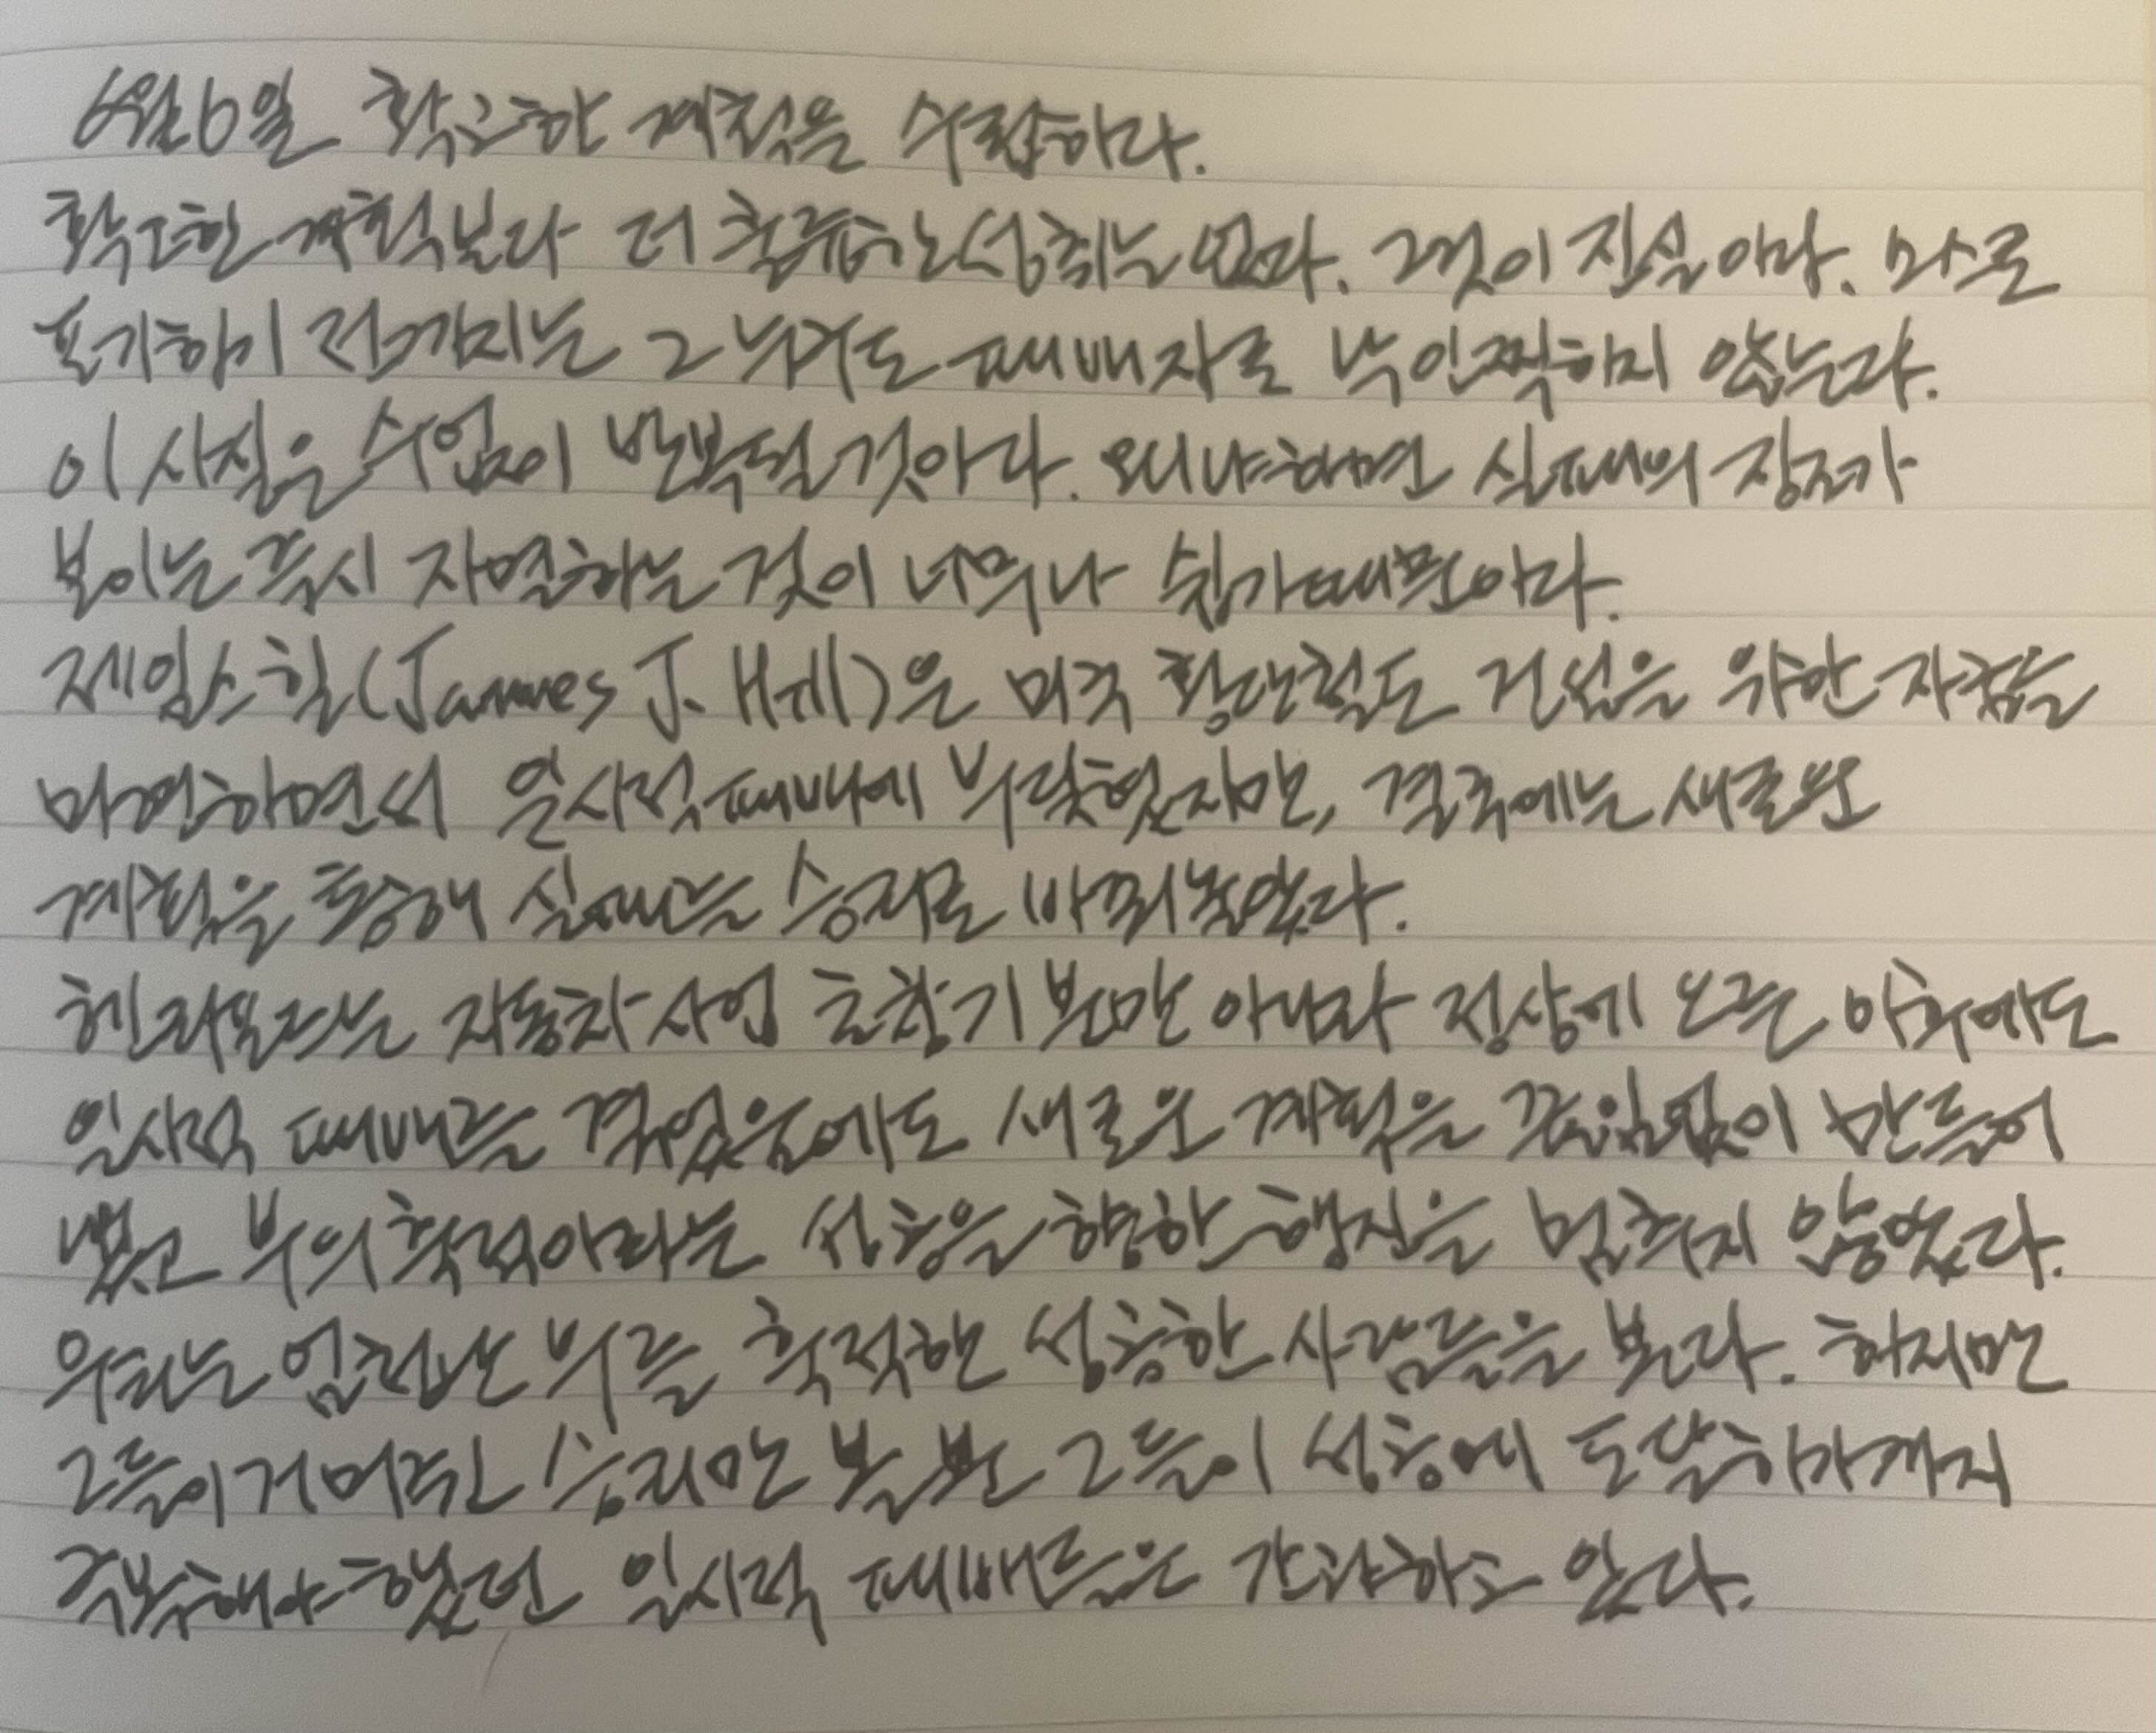 6월6일 확고한 계획을 수립하라.
확고한 계획보다 더 훌륭한 성취는 없다. 그것이 진실이다. 스스로
포기하기 전까지는 그 누구도 패배자로 낙인찍히지 않는다.
이 사실은 수없이 반복될 것이다. 왜냐하면 실패의 징조가
보이는 즉시 자멸하는 것이 너무나 쉽기 때문이다.
제임스 힐(James J. Hill)은 미국 횡단철도 건설을 위한 자금을
마련하면서 일시적 패배에 부딪혔지만, 결국에는 새로운
계획을 통해 실패를 승리로 바꿔놓았다.
헨리포드는 자동차 사업 초창기 뿐만 아니라 정상에 오른 이후에도
일시적 패배를 겪었음에도 새로운 계획을 끊임없이 만들어
냈고 부의 축적이라는 성공을 향한 행진을 멈추지 않았다.
우리는 엄청난 부를 축적한 성공한 사람들을 본다. 하지만
그들이 거머쥔 승리만 볼 뿐 그들이 성공에 도달하기까지
극복해야 했던 일시적 패배들은 간과하고 있다.